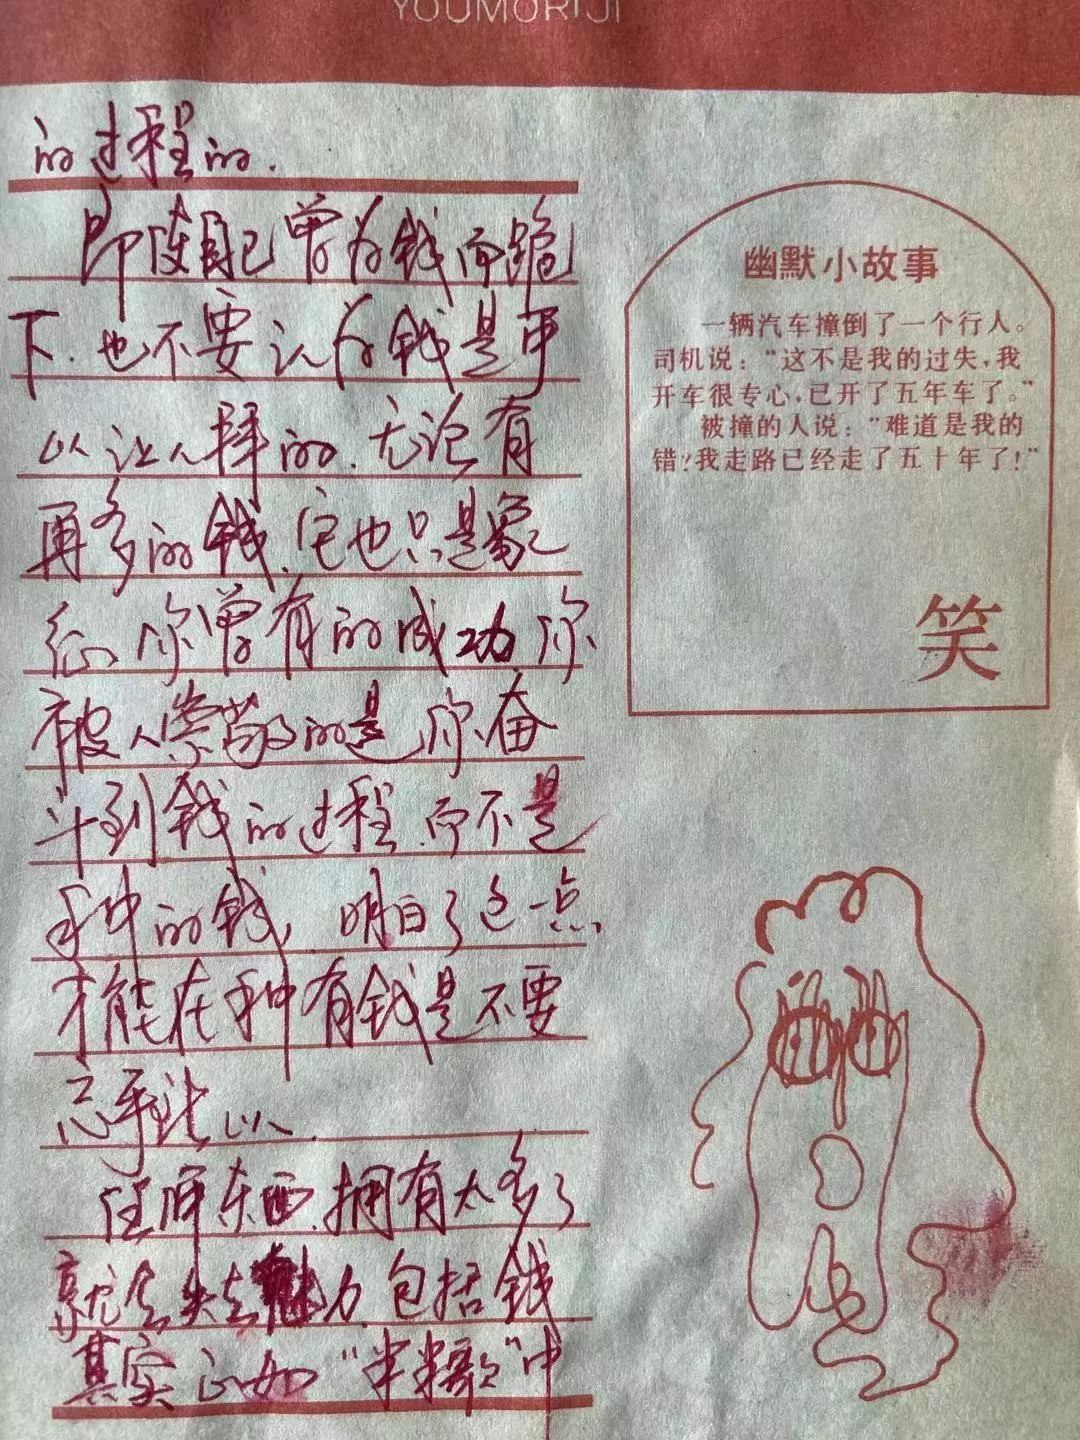 YOUMORIJI
的过程的.
即使自己曾为钱而跪
下.也不要认为钱是可
以让人拜的.无论有
再多的钱.它也只是象
征你曾有的成功你
被人崇敬的是你奋
斗到钱的过程.而不是
手中的钱,明白了这一点
才能在手中有钱是不要
忘乎
任何东西.拥有太多了
就会失去魅力.包括钱
其实正如“半半歌”中
幽默小故事
一辆汽车撞倒了一个行人。
司机说：“这不是我的过失,我
开车很专心,已开了五年车了。”
被撞的人说：“难道是我的
错?我走路已经走了五十年了!”
笑